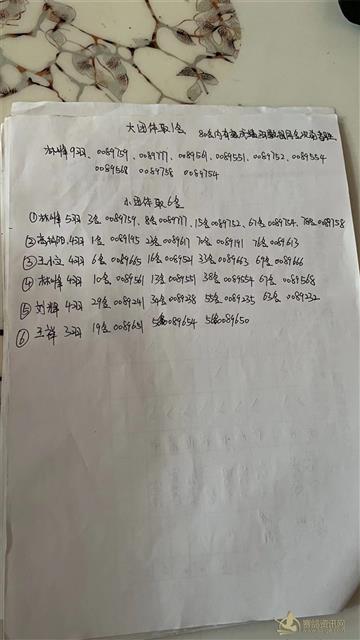 大团体取1名 80名内有
林峰9羽、0089759、0089777、0089561、0089551、0089752、0089554
0089568 0089758 0089754
小团体取6名
①林峰5羽 3名0089759、8名0089777、15名0089752、67名0089754、78名0089758
② 4羽 1名0089195 23名0089617 0089191 76名0089613
③王小文4羽 6名0089665 16名0089521 33名0089663 69名0089666
④林峰4羽 10名0089561 13名0089551 38名0089554 67名0089568
⑤刘辉4羽 29名0089241 34名0089238 55名0089235 63名0089232
⑥王祥3羽 19名0089651 0089654 0089650
赛鸽资讯网